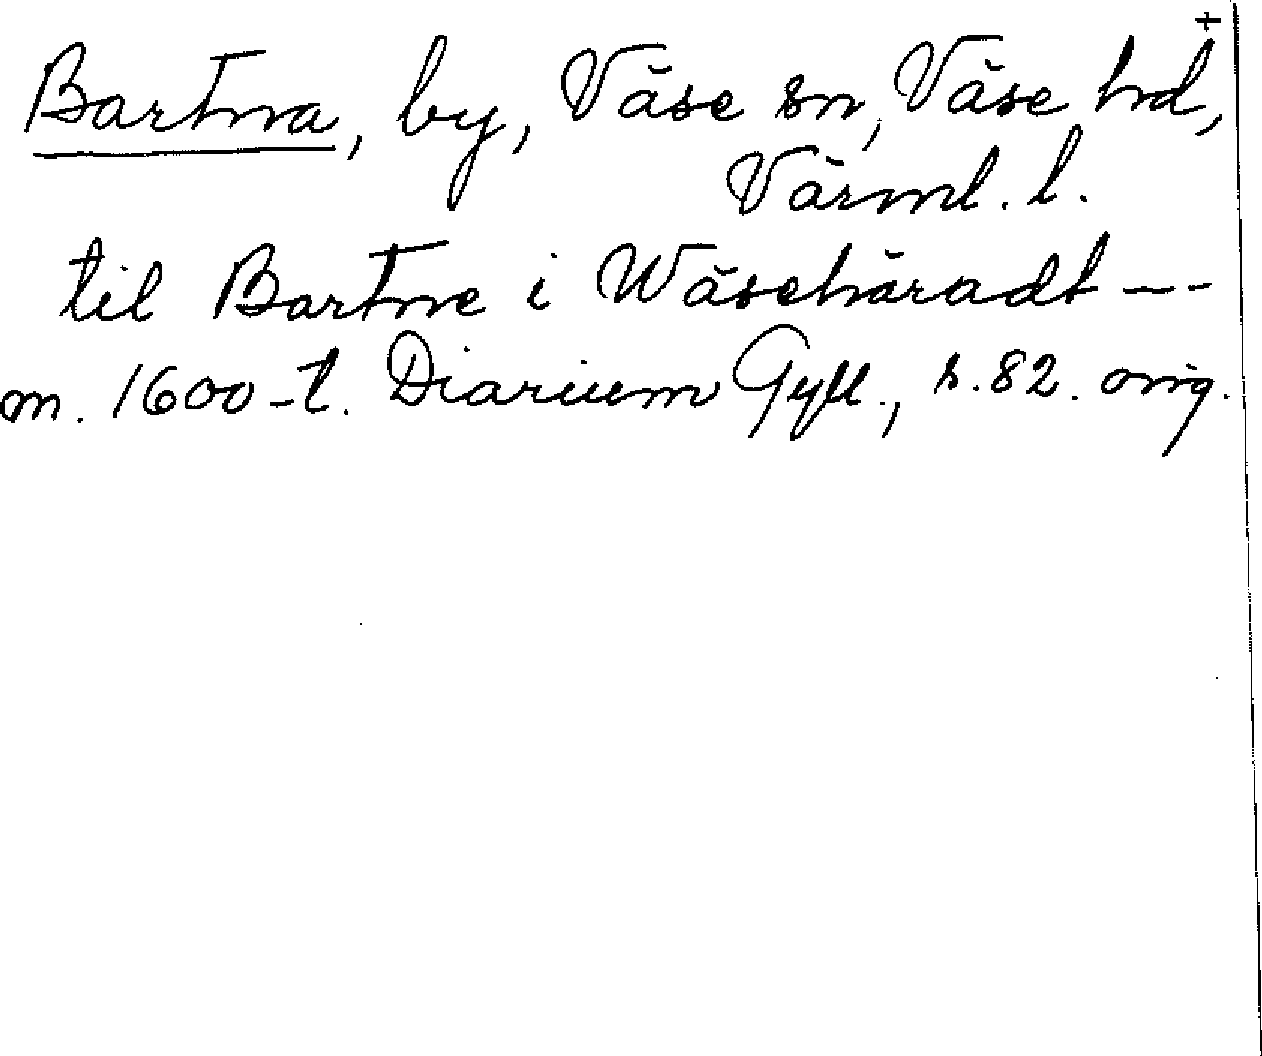 +
Bartna, by, Väse sn, Väse hd,
Värml. l.
til Bartne i Wäsehäradt ---
m. 1600-t. Diarium Gyll., s. 82. orig.